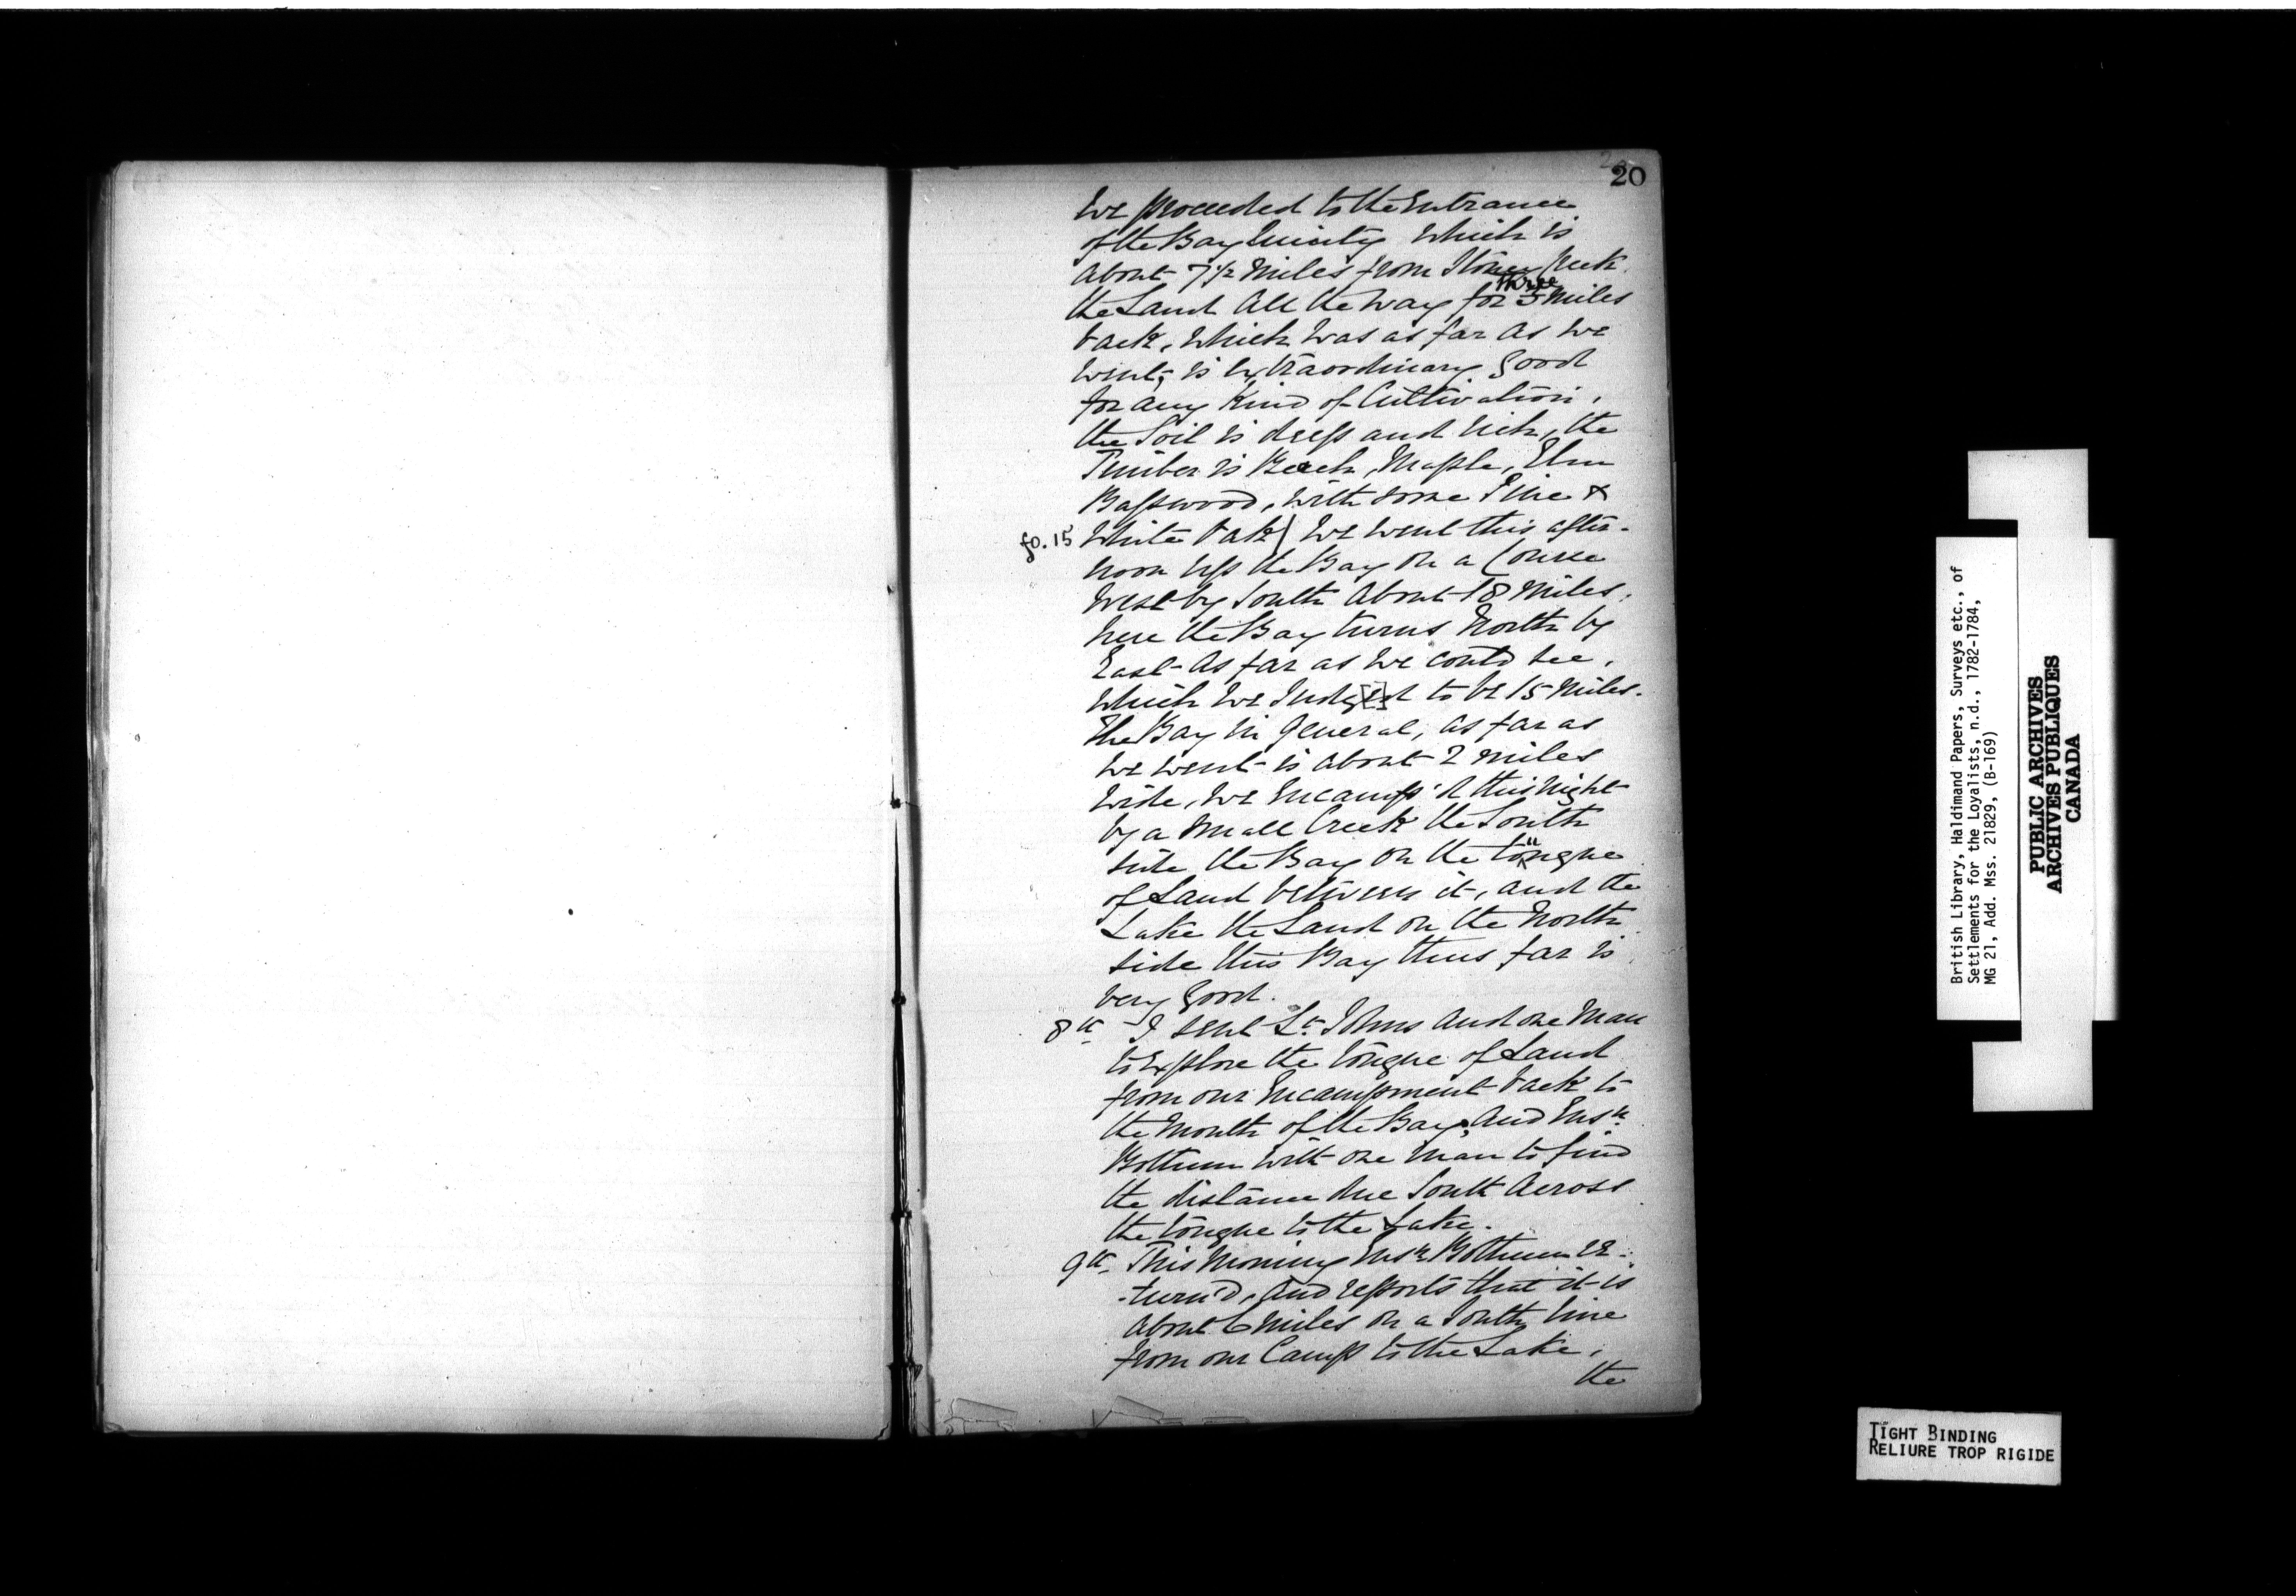 20
We proceeded to the Entrance
of the Bay Quinty which is
about 7 1/2 Miles from Stoney Creek.
the Land All the way for three Miles
back, which was as far as we
went, is extraordinary good
for any Kind of Cultivation,
the Soil is deep and rich, the
Timber is Beech, Maple, Elm
Basswood, with some Pine &
fo. 15 White Oak) We went this after-
noon up the Bay on a Course
West by South about 18 miles,
here the Bay turns North by
East as far as we could see,
which we Judg[e]d to be 15 Miles.
The Bay in general, as far as
we went is about 2 miles
wide, we encamp'd this night
by a small Creek the South
side the Bay on the tongue
of Land between it, and the
Lake the Land on the North
side this Bay thus far is
very good.
8th I sent Lt. Johns and one Man
to Explore the tongue of Land
from our Encampment back to
the Mouth of the Bay, and Ensn.
Bottum with one man to find
the distance due South Across
the tongue to the Lake.
9th This Morning Ensn Bottum re-
-turn'd, and reports that it is
about 6 miles on a South line
from our Camp to the Lake,
the
British Library, Haldimand Papers, Surveys etc., of
Settlements for the Loyalists, n.d., 1782-1784,
MG 21, Add. Mss. 21829, (B-169)
PUBLIC ARCHIVES
ARCHIVES PUBLIQUES
CANADA
TIGHT BINDING
RELIURE TROP RIGIDE